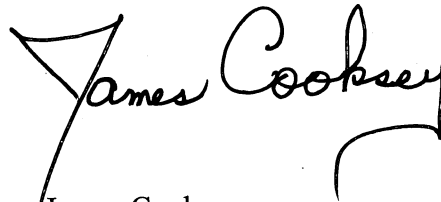 James Cooksey